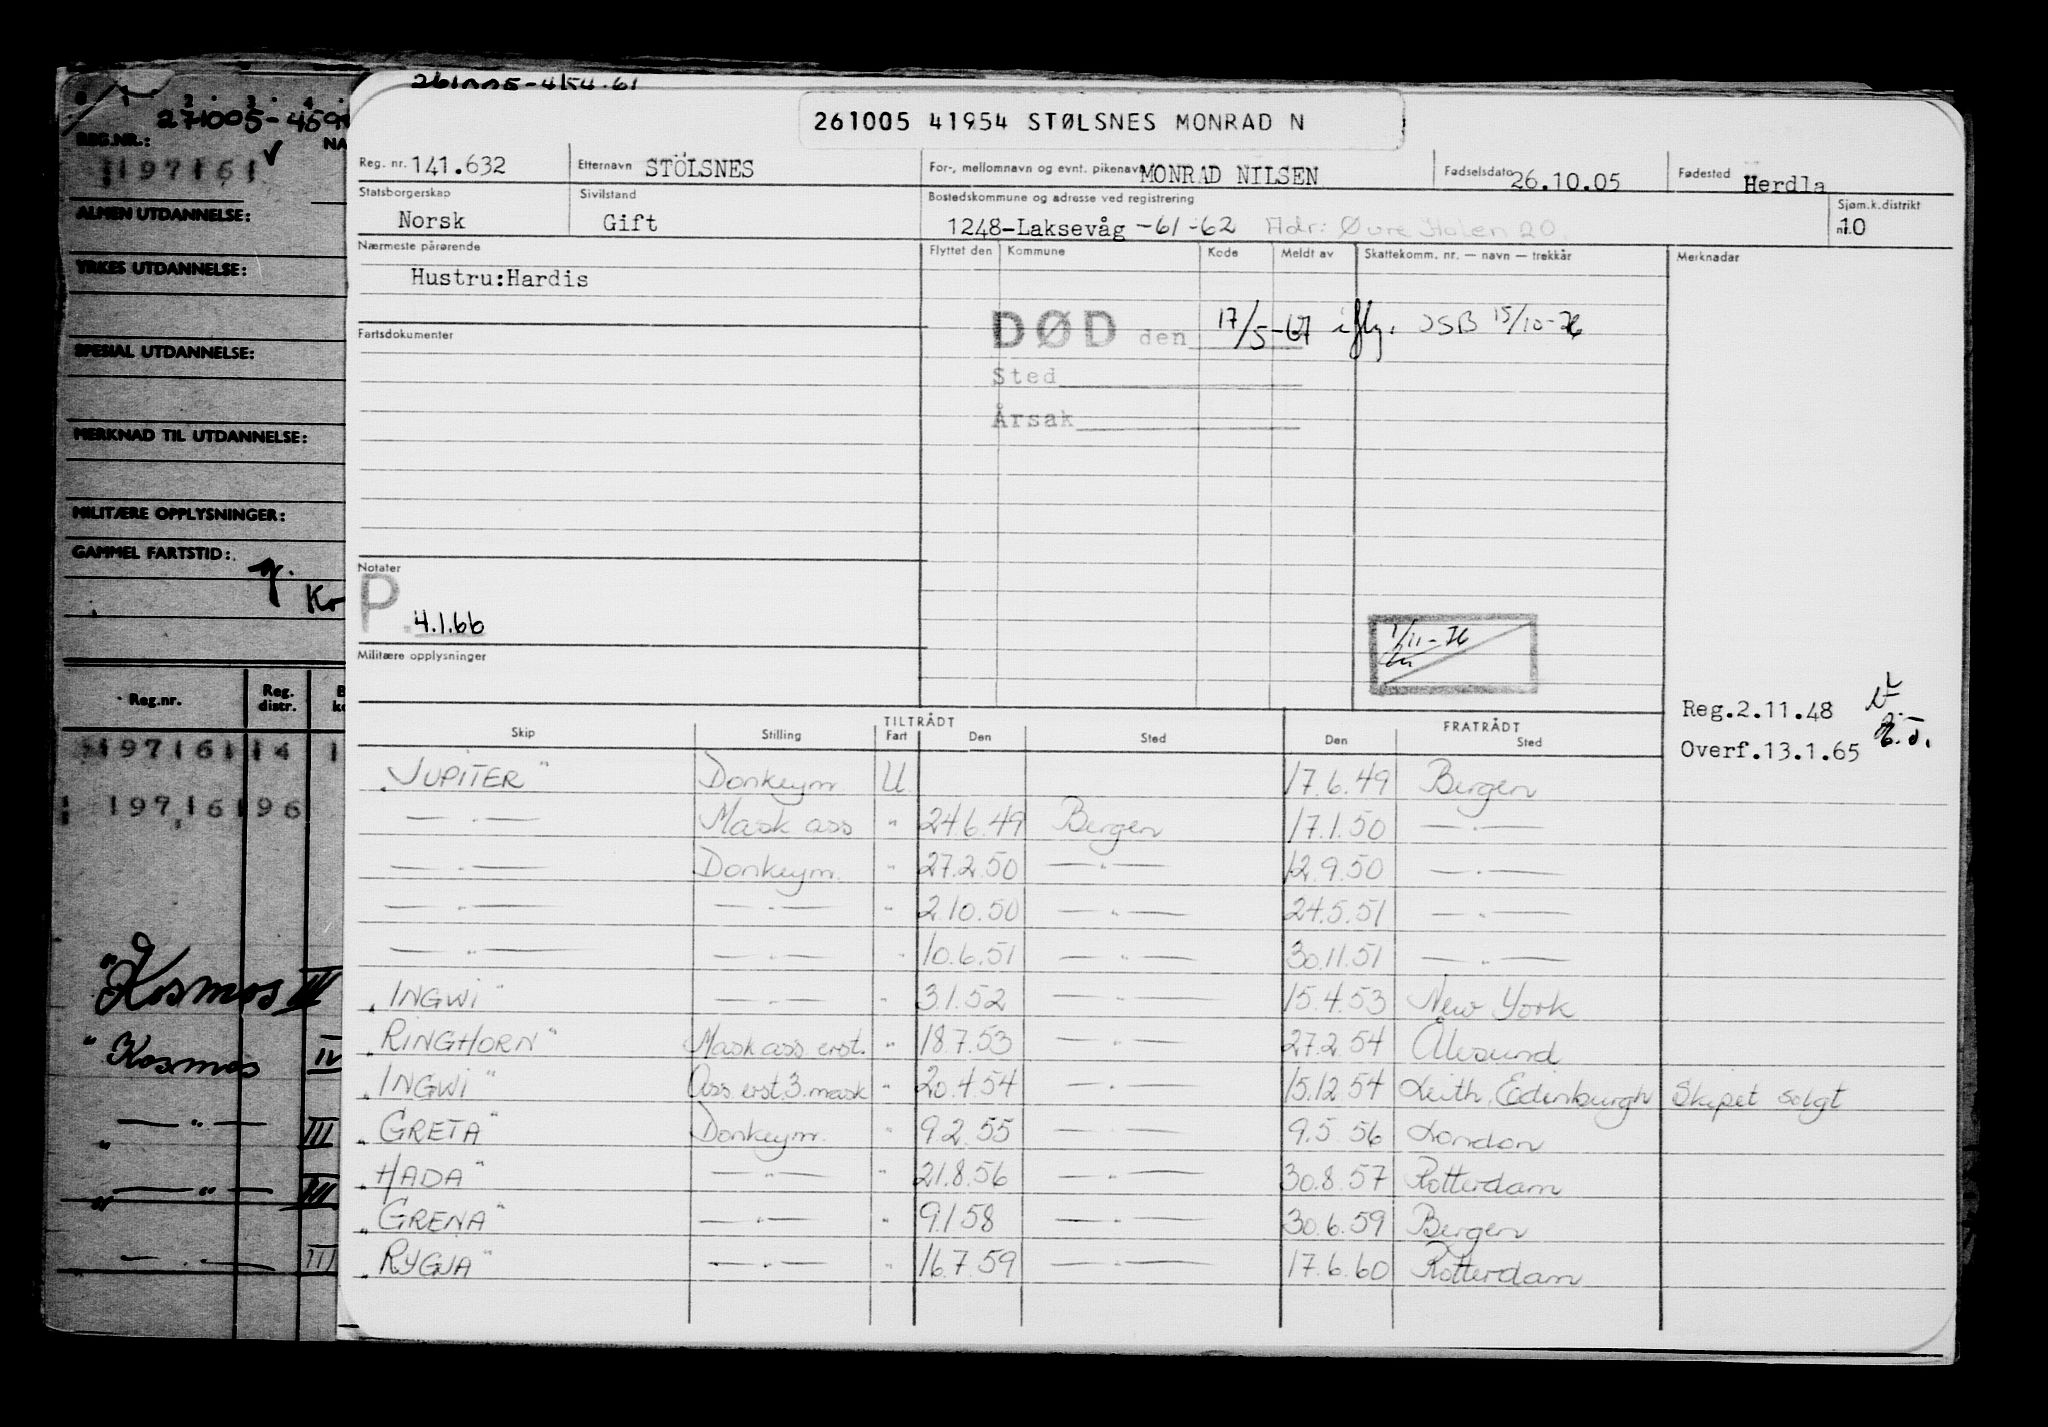 271005-459
REG.NR.: NA
197161 ✓
ALMEN UTDANNELSE:
YRKES UTDANNELSE:
SPESIAL UTDANNELSE:
MERKNAD TIL UTDANNELSE:
MILITÆRE OPPLYSNINGER:
GAMMEL FARTSTID:
Reg.nr. Reg. distr.
197161 14 1
197161 96
"Kosmos III
" Kosmos IV
" — " — III
" — " — III
— " — III
261005 41954 STØLSNES MONRAD N
Reg. nr. 141.632 Etternavn STÖLSNES For-, mellomnavn og evnt. pikenavn MONRAD NILSEN Fødselsdato 26.10.05 Fødested Herdla
Statsborgerskap Sivilstand Bostedskommune og adresse ved registrering Sjøm.k.distrikt
Norsk Gift 1248-Laksevåg -61-62 Adr: Øvre Holen 20. nr. 10
Nærmeste pårørende Flyttet den Kommune Kode Meldt av Skattekomm. nr. — navn — trekkår Merknader
Hustru:Hardis
DØD den 17/5-67 iflg. JSB 15/10-76
Fartsdokumenter
Sted
Årsak
Notater
P. 4.1.66
1/11-76
Militære opplysninger
Reg.2.11.48
Overf.13.1.65
TILTRÅDT FRATRÅDT
Skip Stilling Fart Den Sted Den Sted
"JUPITER" Donkeym. U 17.6.49 Bergen
— " — Mask ass " 24.6.49 Bergen 17.1.50 — " —
— " — Donkeym. " 27.2.50 — " — 12.9.50 — " —
— " — — " — " 2.10.50 — " — 24.5.51 — " —
— " — — " — " 10.6.51 — " — 30.11.51 — " —
"INGWI" — " — " 3.1.52 — " — 15.4.53 New York
"RINGHORN" Mask ass erst. " 18.7.53 27.2.54 Ålesund
"INGWI" Ass erst.3.mask " 20.4.54 — " — 15.12.54 Leith, Edinburgh Skipet solgt
"GRETA" Donkeym. " 9.2.55 — " — 9.5.56 London
"HADA" — " — " 21.8.56 — " — 30.8.57 Rotterdam
"GRENA" — " — " 9.1.58 — " — 30.6.59 Bergen
"RYGJA" — " — " 16.7.59 — " — 17.6.60 Rotterdam